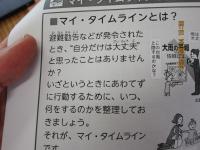 ■マイ・タイムラインとは？
避難勧告などが発令された
とき、"自分だけは大丈夫"
と思ったことはありません
か？
いざというときにあわてず
に行動するために、いつ、
何をするのかを整理してお
きましょう。
それが、マイ・タイムライン
です